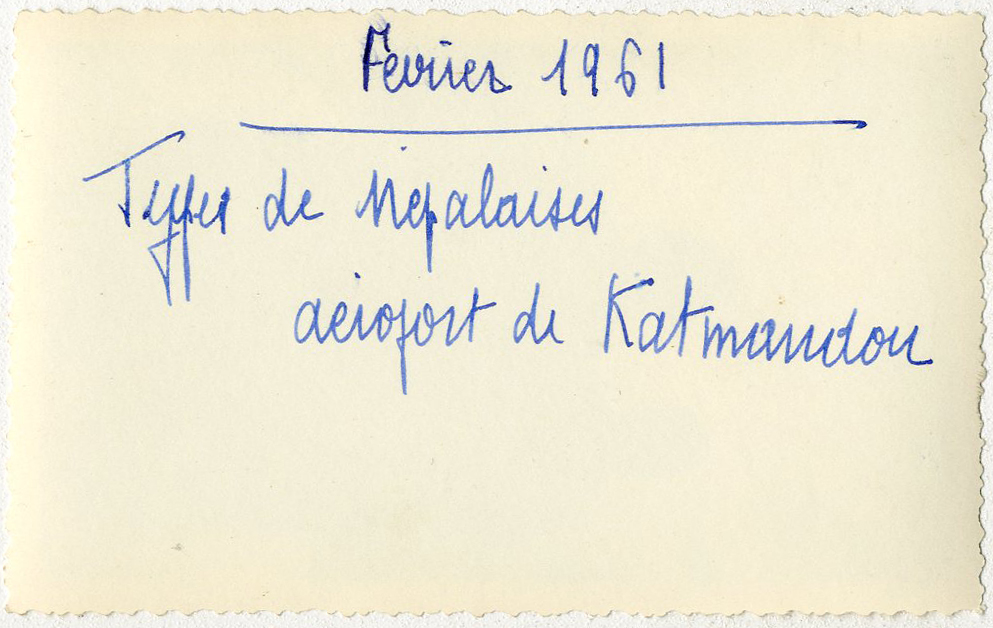 Février 1961
Types de Népalaises
aéroport de Katmandou